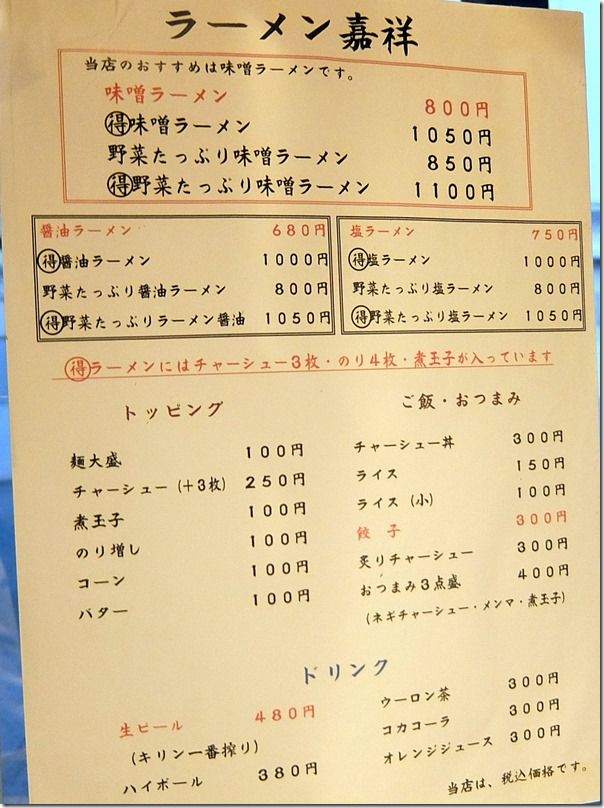 ラーメン 嘉祥
当店のおすすめは味噌ラーメンです。
味噌ラーメン 800円
得味噌ラーメン 1050円
野菜たっぷり味噌ラーメン 850円
得野菜たっぷり味噌ラーメン 1100円
醤油ラーメン 680円
得醤油ラーメン 1000円
野菜たっぷり醤油ラーメン 800円
得野菜たっぷりラーメン醤油 1050円
塩ラーメン 750円
得塩ラーメン 1000円
野菜たっぷり塩ラーメン 800円
得野菜たっぷり塩ラーメン 1050円
得ラーメンにはチャーシュー3枚・のり4枚・煮玉子が入っています
トッピング
麺大盛 100円
チャーシュー(+3枚) 250円
煮玉子 100円
のり増し 100円
コーン 100円
バター 100円
ご飯・おつまみ
チャーシュー丼 300円
ライス 150円
ライス(小) 100円
餃子 300円
炙りチャーシュー 300円
おつまみ3点盛 400円
(ネギチャーシュー・メンマ・煮玉子)
ドリンク
生ビール 480円
(キリン一番搾り)
ハイボール 380円
ウーロン茶 300円
コカコーラ 300円
オレンジジュース 300円
当店は、税込価格です。